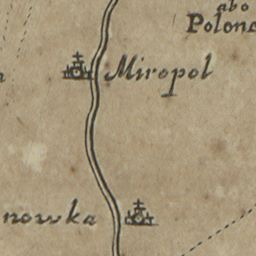 abo
Polono
Miropol
nowka